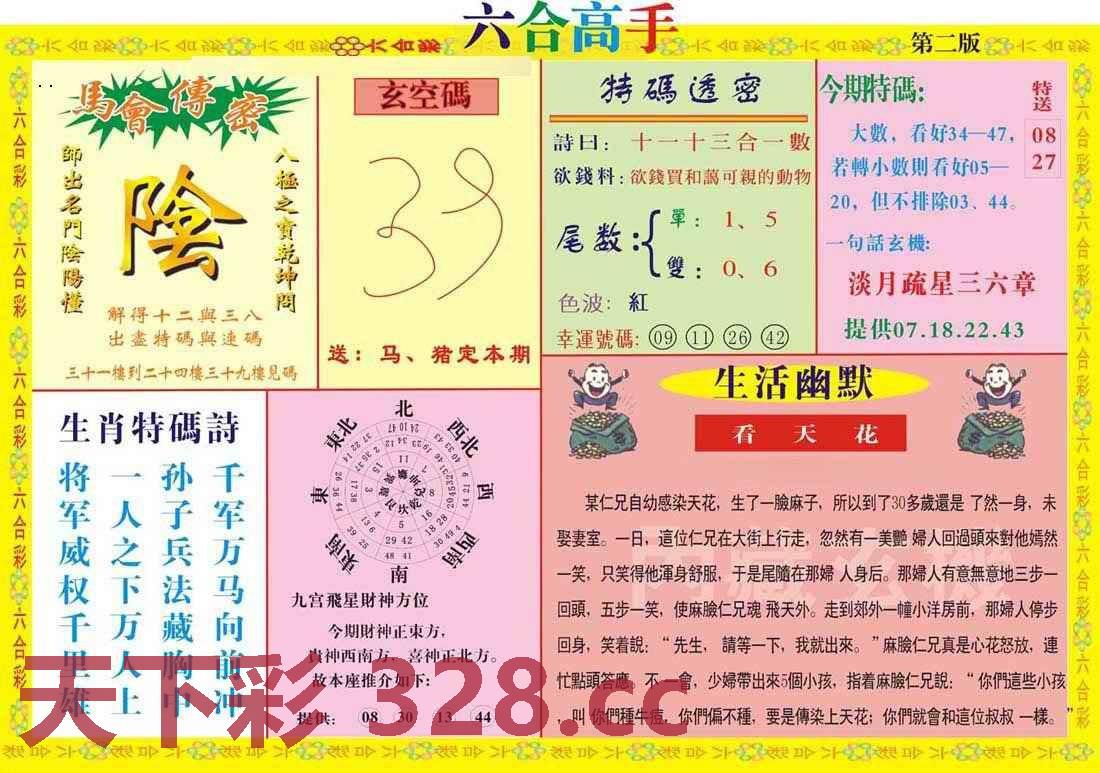 六合高手
第二版
馬會傳密
師出名門陰陽懂
陰
八極之寶乾坤問
解得十二與三八
出盡特碼與連碼
三十一樓到二十四樓三十九樓見碼
玄空碼
送：马、猪定本期
特碼透密
詩曰：十一十三合一數
欲錢料：欲錢買和藹可親的動物
尾数：
單：1、5
雙：0、6
色波：紅
幸運號碼：09 11 26 42
今期特碼：
特送
08
27
大數，看好34—47，
若轉小數則看好05—
20，但不排除03、44。
一句話玄機：
淡月疏星三六章
提供07.18.22.43
生肖特碼詩
千军万马向前冲
孙子兵法藏胸中
一人之下万人上
将军威权千里雄
北
西北
西
西南
南
東南
東
東北
九宫飛星財神方位
今期財神正東方，
貴神西南方，喜神正北方。
故本座推介如下：
提供：08 30 13 44
生活幽默
看天花
某仁兄自幼感染天花，生了一臉麻子，所以到了30多歲還是 了然一身，未
娶妻室。一日，這位仁兄在大街上行走，忽然有一美艷 婦人回過頭來對他嫣然
一笑，只笑得他渾身舒服，于是尾隨在那婦 人身后。那婦人有意無意地三步一
回頭，五步一笑，使麻臉仁兄魂 飛天外。走到郊外一幢小洋房前，那婦人停步
回身，笑着說：“先生，請等一下，我就出來。”麻臉仁兄真是心花怒放，連
忙點頭答應。不一會，少婦帶出來5個小孩，指着麻臉仁兄說：“你們這些小孩
，叫 你們種牛痘，你們偏不種，要是傳染上天花；你們就會和這位叔叔 一樣。”
天下彩 328.cc